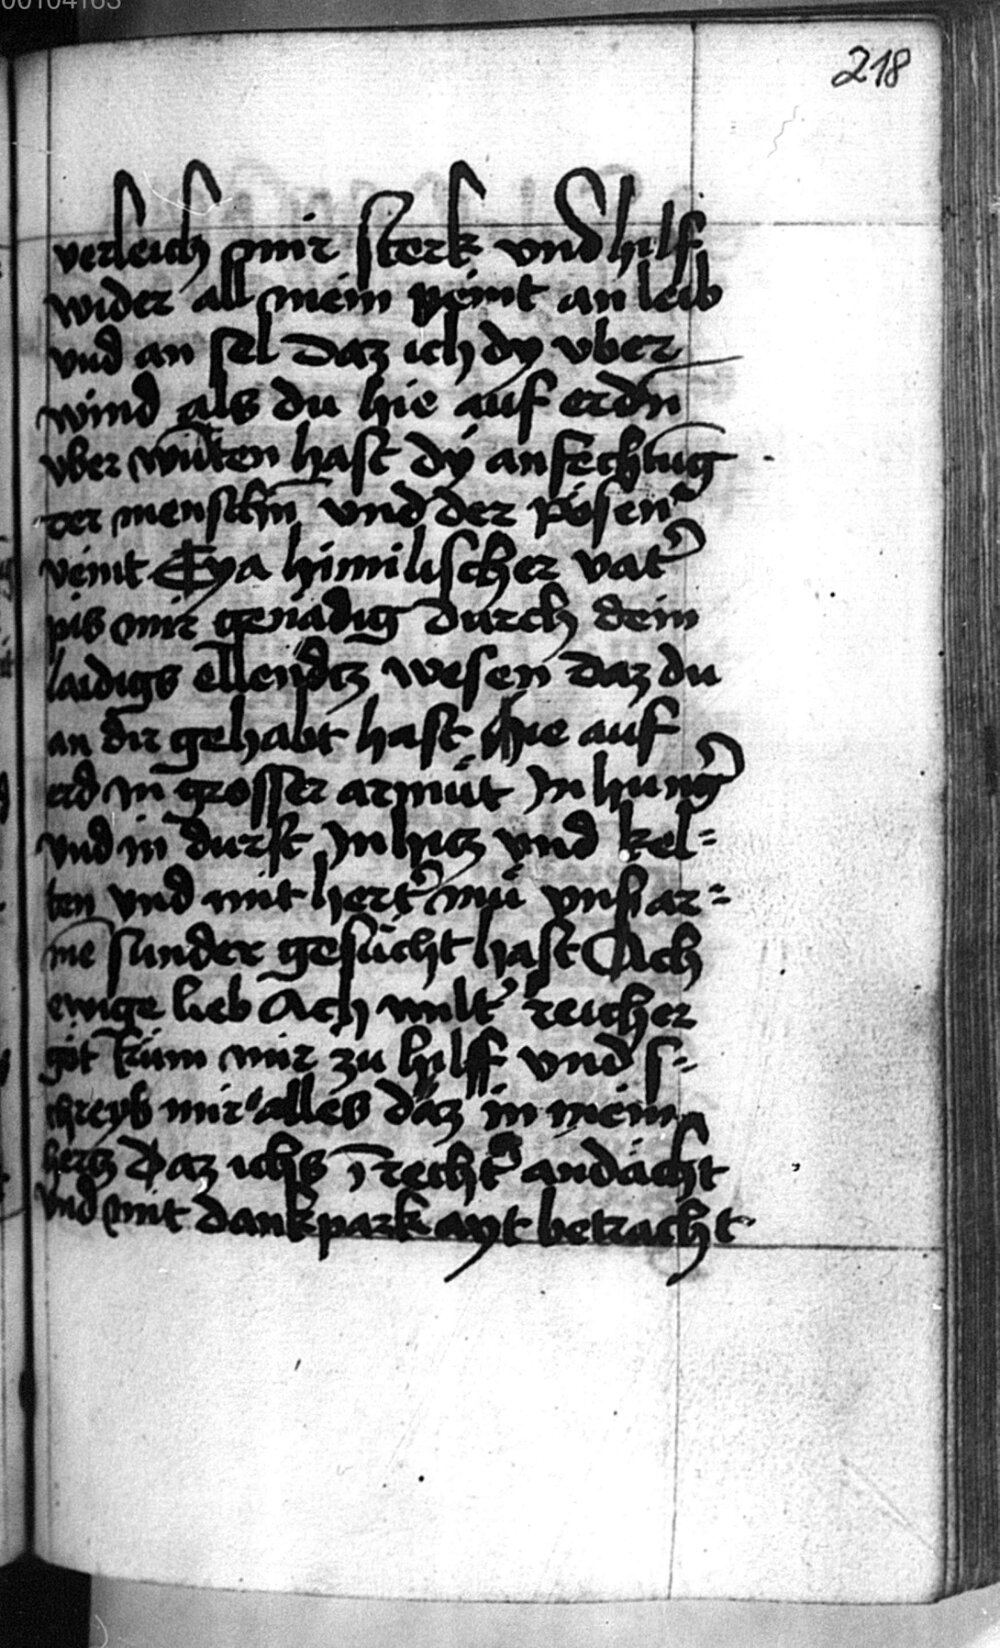 00104163
218
verleich mir sterk vnd hilf
wider all mein veint an leib
vnd an sel daz ich dy vber
wind als du hie auf erdn
vber wūten hast dÿ anfechtūg
der menschn̄ vnd der pösen
veint Eya himilischer vatʾ
pis mir genädig durch dein
laidigs ellendtz wesen daz du
an dir gehabt hast hie auf
erd in grosser armüt In hungʾ
vnd in durst In hitz vnd kel=
ten vnd mit hertʾ mü vns ar=
me sunder gesücht hast Ach
ewige lieb Ach miltʾ reicher
got kum mir zu hilff vnd s=
chreyb mir alles daz in mein
hertz Daz ichs ī rechtʾ andächt
vnd mit dankparkayt betracht